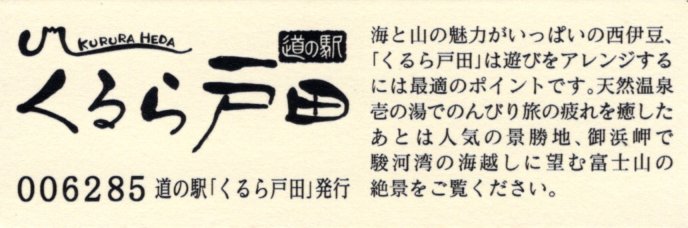 KURURA HEDA
道の駅
くるら戸田
006285 道の駅「くるら戸田」発行
海と山の魅力がいっぱいの西伊豆、
「くるら戸田」は遊びをアレンジする
には最適のポイントです。天然温泉
壱の湯でのんびり旅の疲れを癒した
あとは人気の景勝地、御浜岬で
駿河湾の海越しに望む富士山の
絶景をご覧ください。